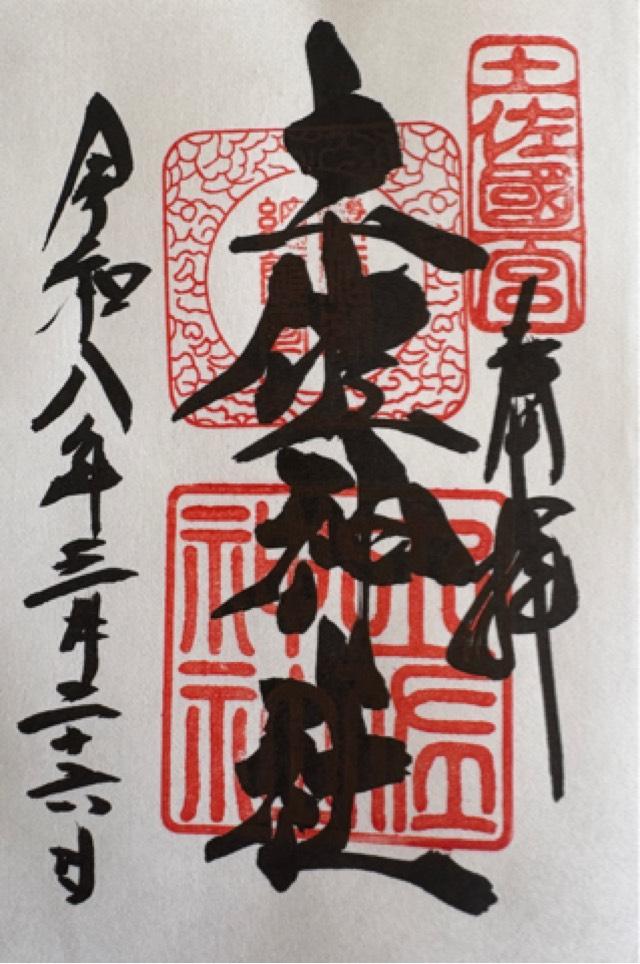 土佐國一宮
奉拝
土佐神社
土佐神社
令和八年三月二十六日